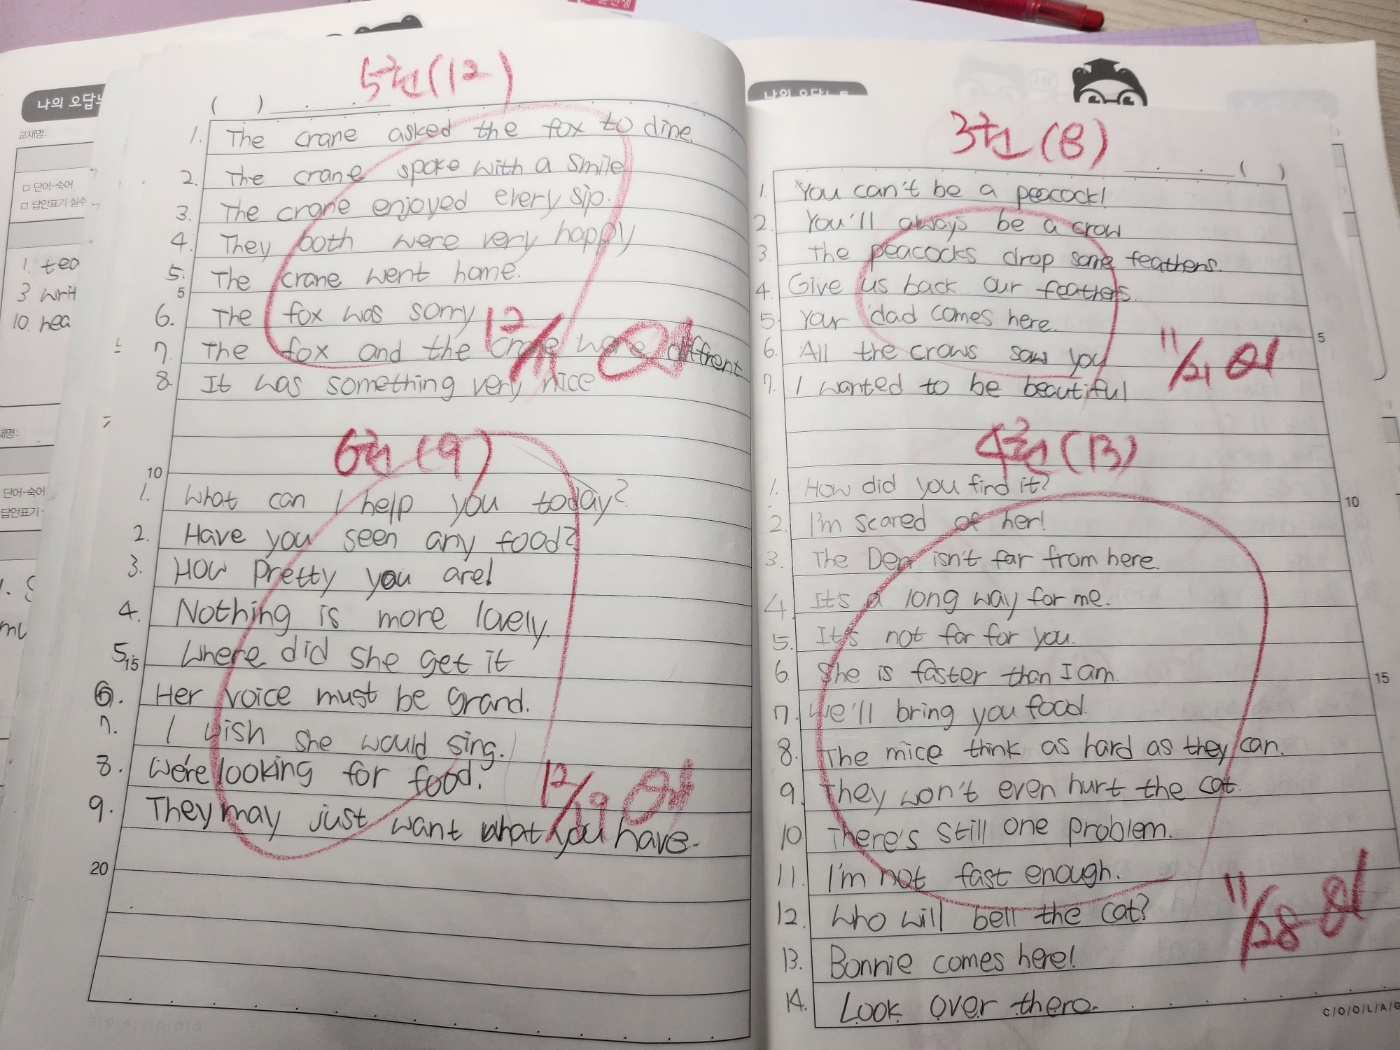 나의 오답노
교재명:
□ 단어·숙어
□ 답안표기 실수
1. teo
3. writ
10 hea
단어·숙어
답안표기
5권(12)
( )
1. The crane asked the fox to dine.
2. The crane spoke with a smile
3. The crane enjoyed every sip.
4. They both were very happy
5. The crane went home.
5
6. The fox was sorry
7. The fox and the crane were diffrent
8. It was something very nice
12/19
6권(9)
10
1. What can I help you today?
2. Have you seen any food?
3. How pretty you are!
4. Nothing is more lovely.
5. Where did she get it
15
6. Her voice must be grand.
7. I wish she would sing.
8. We're looking for food.
9. They may just want what you have.
12/19
20
나의 오답노트
3권(8)
( )
1. You can't be a peacock!
2. You'll always be a crow
3. The peacocks drop some feathers.
4. Give us back our feathers.
5. Your dad comes here.
5
6. All the crows saw you
7. I wanted to be beautiful
11/21
4권(13)
1. How did you find it?
10
2. I'm scared of her!
3. The Den isn't far from here.
4. It's a long way for me.
5. It's not far for you.
6. She is faster than I am.
15
7. We'll bring you food.
8. The mice think as hard as they can.
9. They won't even hurt the cat.
10 There's still one problem.
11. I'm not fast enough.
12. Who will bell the cat?
11/28
13. Bonnie comes here!
14. Look over there.
C/O/O/L/A/G